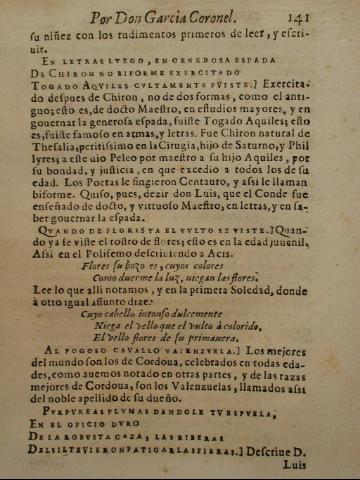 Por Don Garcia Coronel. 141
su niñez con los rudimentos primeros de leer, y escri-
uir.
EN LETRAS LVEGO, EN GENEROSA ESPADA
DE CHIRON NO BIFORME EXERCITADO
TOGADO AQVILES CVLTAMENTE FVISTE.] Exercita-
do despues de Chiron, no de dos formas, como el anti-
guo; esto es, de docto Maestro, en estudios mayores, y en
gouernar la generosa espada, fuiste Togado Aquiles; esto
es, fuiste famoso en armas, y letras. Fue Chiron natural de
Thesalia, peritissimo en la Cirugia, hijo de Saturno, y Phil
lyres; a este dio Peleo por maestro a su hijo Aquiles, por
su bondad, y justicia, en que excedio a todos los de su
edad. Los Poetas le fingieron Centauro, y assi le llaman
biforme. Quiso, pues, dezir don Luis, que el Conde fue
enseñado de docto, y virtuoso Maestro, en letras, y en sa-
ber gouernar la espada.
QVANDO DE FLORES YA EL VVLTO SE VISTE.] Quan-
do ya se viste el rostro de flores; esto es en la edad juuenil.
Assi en el Polifemo descriuiendo a Acis.
Flores su bozo es, cuyos colores
Como duerme la luz, niegan las flores.
Lee lo que alli notamos, y en la primera Soledad, donde
à otro igual assunto dize.
Cuyo cabello intonso dulcemente
Niega el vello que el vulto à colorido,
El vello flores de su primauera.
AL FOGOSO CAVALLO VALENZVELA.] Los mejores
del mundo son los de Cordoua, celebrados en todas eda-
des, como auemos notado en otras partes, y de las razas
mejores de Cordoua, son los Valenzuelas, llamados assi
del noble apellido de su dueño.
PVRPVREAS PLVMAS DANDOLE TV ESPVELA,
EN EL OFICIO DVRO
DE LA ROBVSTA CAZA, LAS RIBERAS
DEL SILTE VIERON FATIGAR LAS FIERAS.] Descriue D.
Luis